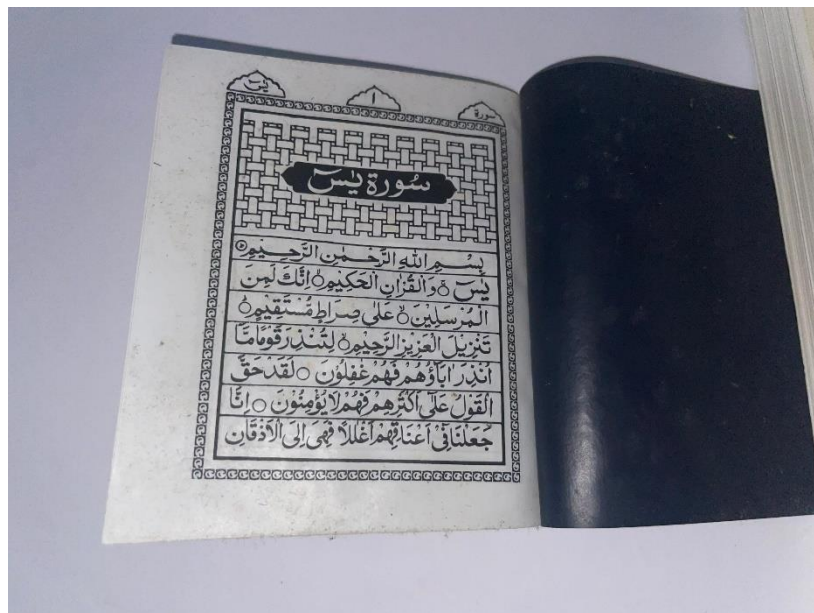 سورة ١ يٰسٓ
سُورَة يٰسٓ
بِسْمِ اللهِ الرَّحْمٰنِ الرَّحِيْمِ
يٰسٓ ۞ وَالْقُرْاٰنِ الْحَكِيْمِ ۞ اِنَّكَ لَمِنَ
الْمُرْسَلِيْنَ ۞ عَلٰى صِرَاطٍ مُّسْتَقِيْمٍ ۞
تَنْزِيْلَ الْعَزِيْزِ الرَّحِيْمِ ۞ لِتُنْذِرَ قَوْمًا مَّا
اُنْذِرَ اٰبَآؤُهُمْ فَهُمْ غٰفِلُوْنَ ○ لَقَدْ حَقَّ
الْقَوْلُ عَلٰى اَكْثَرِهِمْ فَهُمْ لَا يُؤْمِنُوْنَ ○ اِنَّا
جَعَلْنَا فِيْ اَعْنَاقِهِمْ اَغْلٰلًا فَهِيَ اِلَى الْاَذْقَانِ